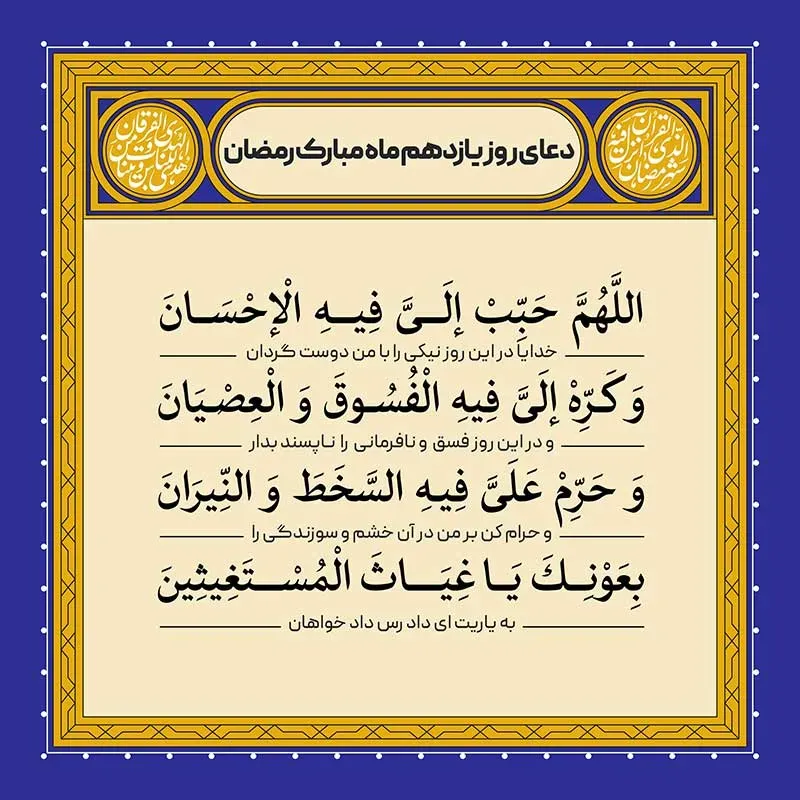 دعای روز یازدهم ماه مبارک رمضان
شهر رمضان الذی انزل فیه القرآن
هدی للناس و بینات من الهدی و الفرقان
اللَّهُمَّ حَبِّبْ إلَـیَّ فِیـهِ الْإحْسَـانَ
خدایا در این روز نیکی را با من دوست گردان
وَ کَـرِّهْ إلَیَّ فِیهِ الْفُسُـوقَ وَ الْعِصْیَانَ
و در این روز فسق و نافرمانی را ناپسند بدار
وَ حَرِّمْ عَلَیَّ فِیهِ السَّخَطَ وَ النِّیرَانَ
و حرام کن بر من در آن خشم و سوزندگی را
بِعَوْنِـكَ یَـا غِیَـاثَ الْمُسْـتَغِیثِینَ
به یاریت ای داد رس داد خواهان